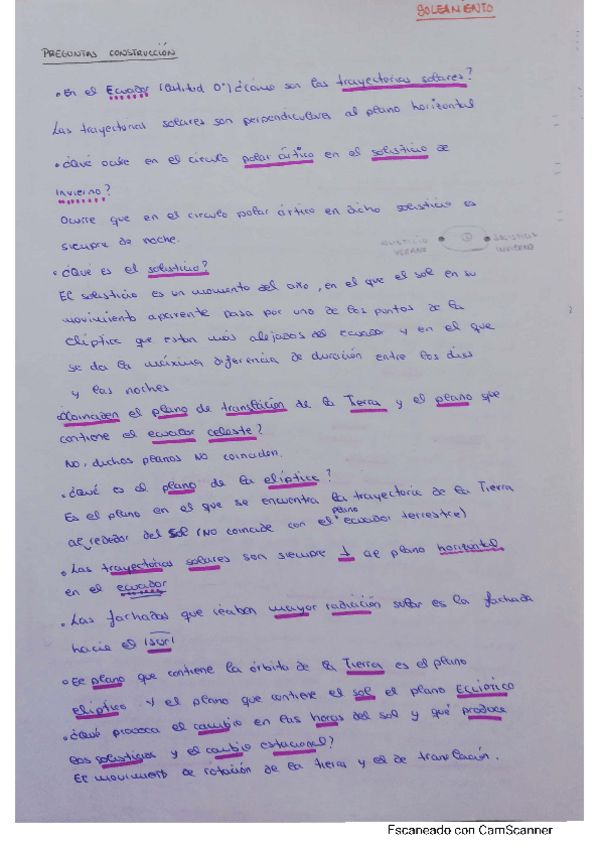 SOLEAMIENTO
PREGUNTAS CONSTRUCCIÓN
• En el Ecuador (latitud 0°) ¿cómo son las trayectorias solares?
Las trayectorias solares son perpendiculares al plano horizontal
• ¿Qué ocurre en el circulo polar ártico en el solsticio de
invierno?
Ocurre que en el circulo polar ártico en dicho solsticio es
siempre de noche.
SOLSTICIO VERANO
SOLSTICIO INVIERNO
• ¿Qué es el solsticio?
El solsticio es un momento del año, en el que el sol en su
movimiento aparente pasa por uno de los puntos de la
elíptica que estan más alejados del ecuador y en el que
se da la máxima diferencia de duración entre los dias
y las noches
¿Coinciden el plano de translación de la Tierra y el plano que
contiene el ecuador celeste?
No, dichos planos NO coinciden.
• ¿Qué es el plano de la elíptica?
Es el plano en el que se encuentra la trayectoria de la Tierra
plano
alrededor del Sol (no coincide con el ecuador terrestre)
• Las trayectorias solares son siempre ⊥ al plano horizontal
en el ecuador
• Las fachadas que reciben mayor radiación solar es la fachada
hacia el sur
• El plano que contiene la órbita de la Tierra es el plano
elíptico y el plano que contiene el sol el plano Eclíptico
• ¿Qué provoca el cambio en las horas del sol y qué produce
los solsticios y el cambio estacional?
El movimiento de rotación de la tierra y el de translación.
Escaneado con CamScanner